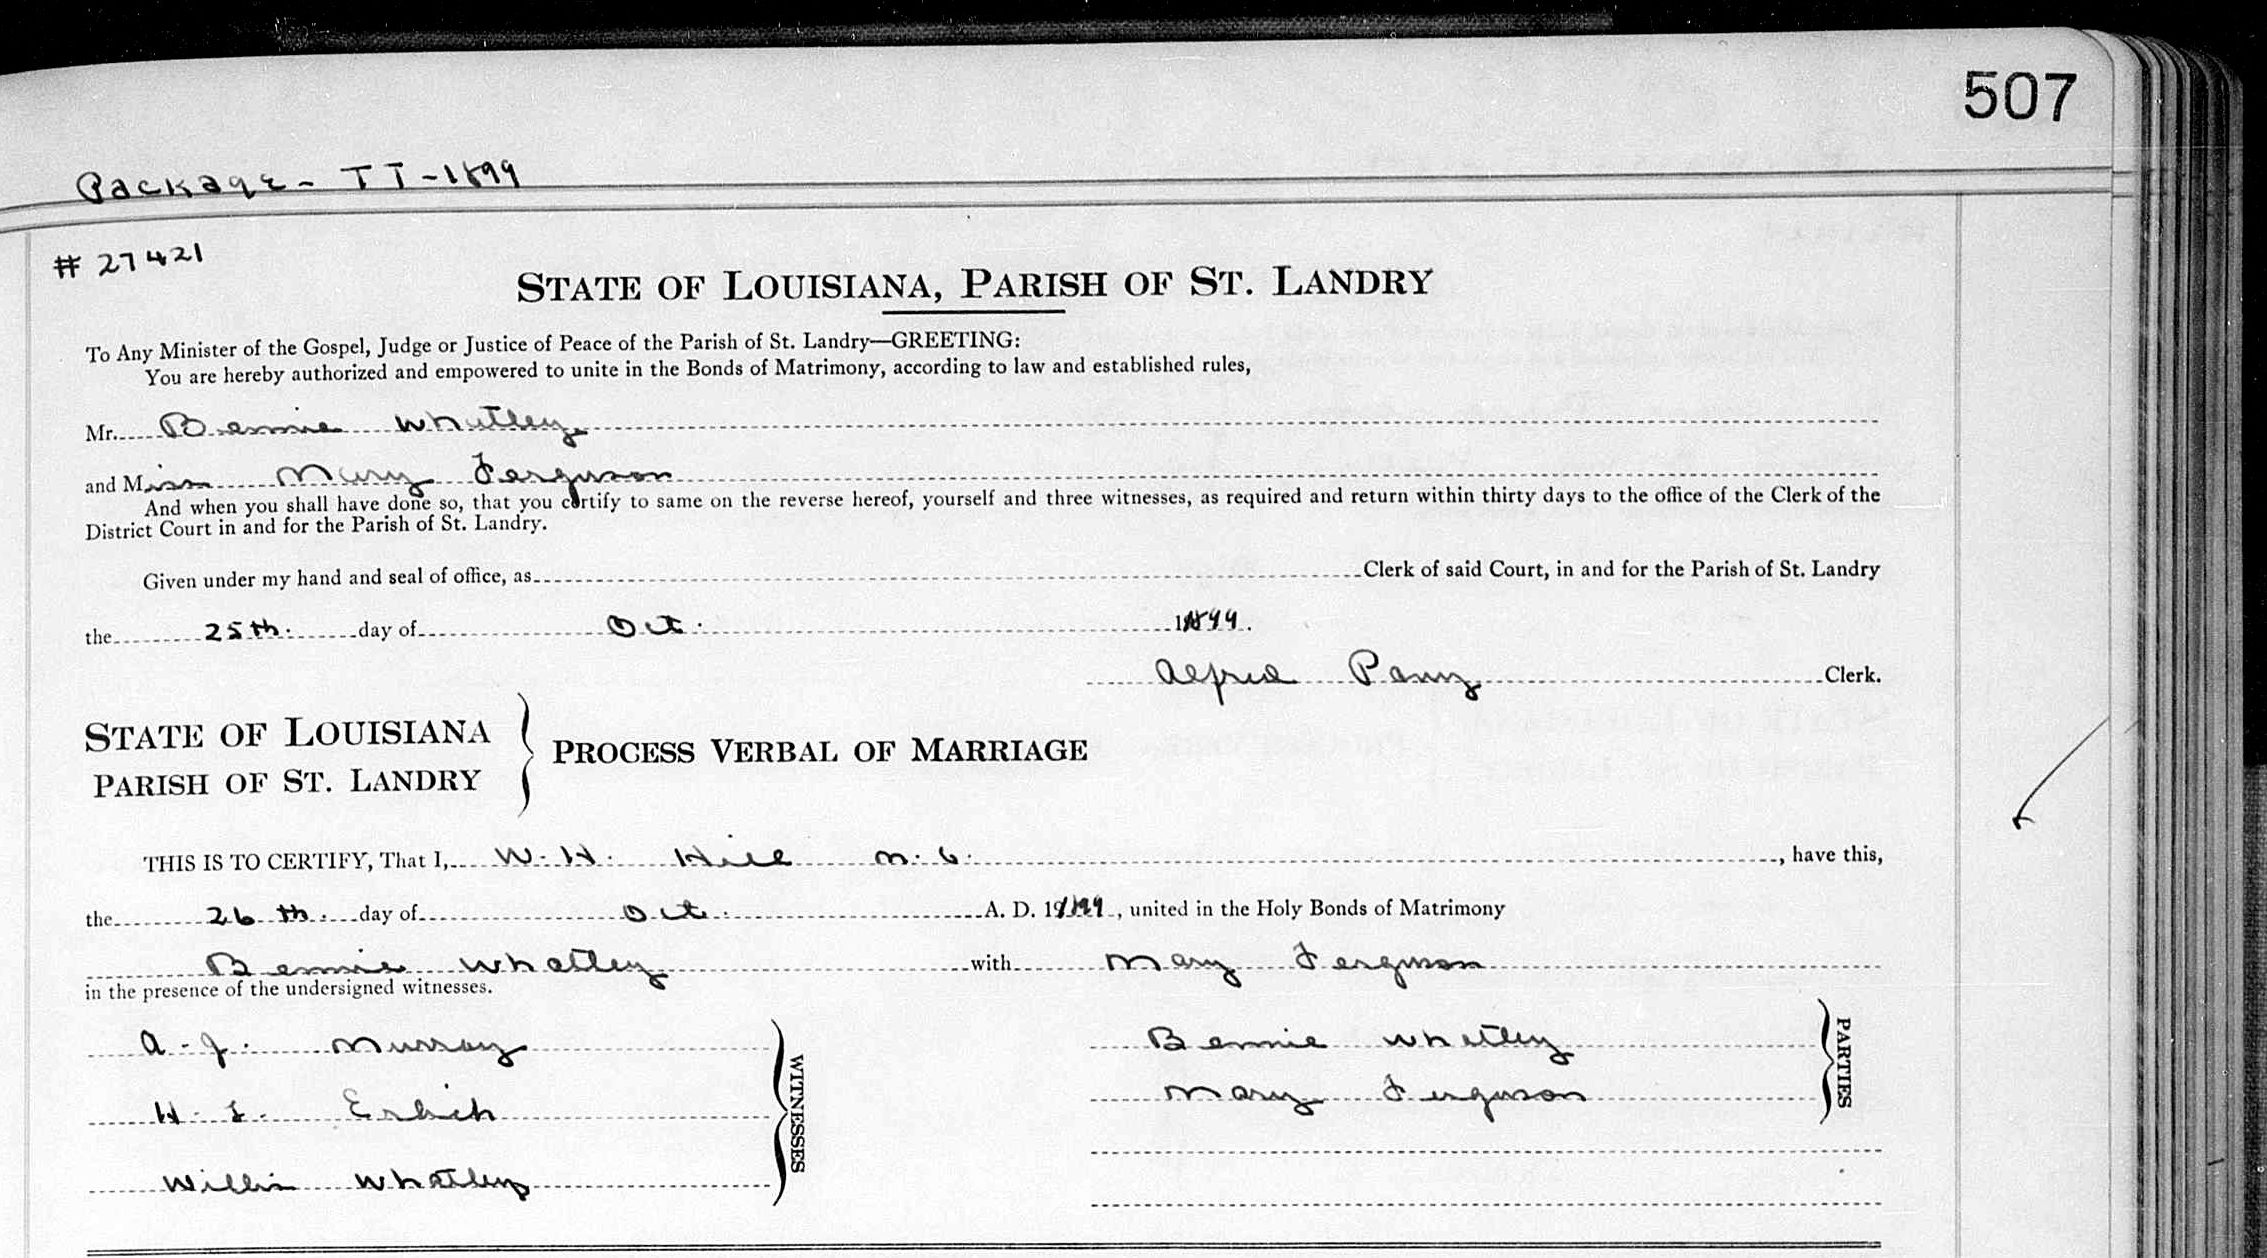 507
Package - TT - 1899
# 27421
STATE OF LOUISIANA, PARISH OF ST. LANDRY
To Any Minister of the Gospel, Judge or Justice of Peace of the Parish of St. Landry—GREETING:
You are hereby authorized and empowered to unite in the Bonds of Matrimony, according to law and established rules,
Mr. Bennie Whatley
and Miss Mary Ferguson
And when you shall have done so, that you certify to same on the reverse hereof, yourself and three witnesses, as required and return within thirty days to the office of the Clerk of the
District Court in and for the Parish of St. Landry.
Given under my hand and seal of office, as Clerk of said Court, in and for the Parish of St. Landry
the 25th. day of Oct. 1899.
Alfred Clerk.
STATE OF LOUISIANA
PARISH OF ST. LANDRY
PROCESS VERBAL OF MARRIAGE
THIS IS TO CERTIFY, That I, W. H. Hill , have this,
the 26th. day of Oct. A. D. 1899, united in the Holy Bonds of Matrimony
Bennie Whatley with Mary Ferguson
in the presence of the undersigned witnesses.
A. J. Murray
H. Erlich
Willis Whatley
WITNESSES
Bennie Whatley
Mary Ferguson
PARTIES